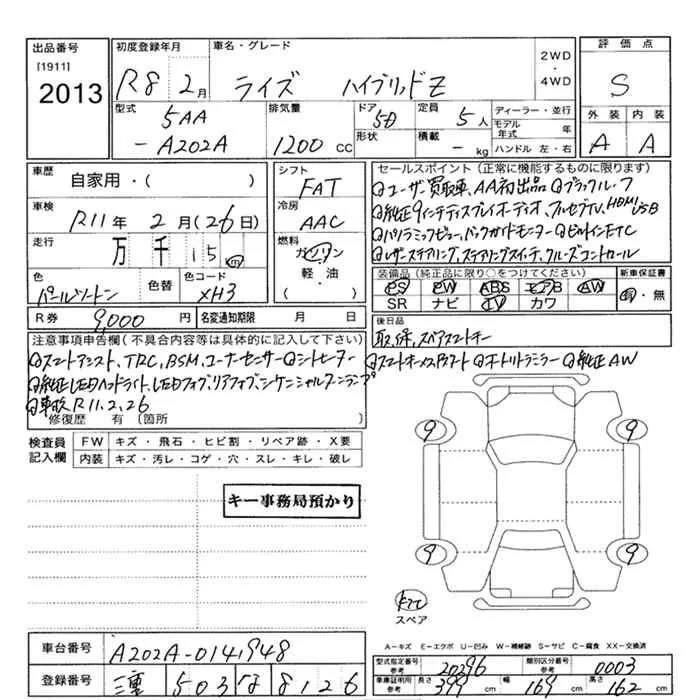 出品番号
[1911]
2013
初度登録年月
R8 2月
車名・グレード
ライズ ハイブリッドZ
2WD
・
4WD
評価点
S
型式
5AA
-A202A
排気量
1200 CC
ドア
5D
形状
定員
5人
積載
- kg
ディーラー・並行
モデル年式 年
ハンドル 左・右
外装 内装
A A
車歴
自家用・( )
車検
R11年 2月(26日)
走行
万 千 15 m
色
パールツートン
色替
色コード
XH3
シフト
FAT
冷房
AAC
燃料
ガソリン
軽・油
( )
セールスポイント(正常に機能するものに限ります)
ユーザー買取車、AA初出品 ブラックルーフ
純正9インチディスプレイオーディオ、フルセグTV、HDMI USB
パノラミックビュー、バックガイドモニター ビルトインETC
レザーステアリング、ステアリングスイッチ、クルーズコントロール
装備品(純正品に限り○をつけてください)
PS PW ABS エアB AW
SR ナビ TV カワ
新車保証書
有・無
R券 9,000円
名変通知期限 月 日
後日品
取、保、スペアスマートキー
注意事項申告欄(不具合内容等は具体的に記入して下さい)
スマートアシスト、TRC、BSM、コーナーセンサー シートヒーター
純正LEDヘッドライト、LEDフォグ、リアフォグ、シーケンシャルターンランプ
車検R11.2.26
修復歴 有 (箇所 )
スマートキー×プッシュスタート オートリトラミラー 純正AW
検査員
記入欄
FW キズ・飛石・ヒビ割・リペア跡・X要
内装 キズ・汚レ・コゲ・穴・スレ・キレ・破レ
キー事務局預かり
9 9
9 9
スペア
A-キズ E-エクボ U-凹み W-補修跡 S-サビ C-腐食 XX-交換済
車台番号 A202A-0141948
登録番号 三重 503 な 8126
型式指定番号
参考
20296
類別区分番号
参考
0003
車庫証明用
参考
長さ 399 cm 幅 169 cm 高さ 162 cm